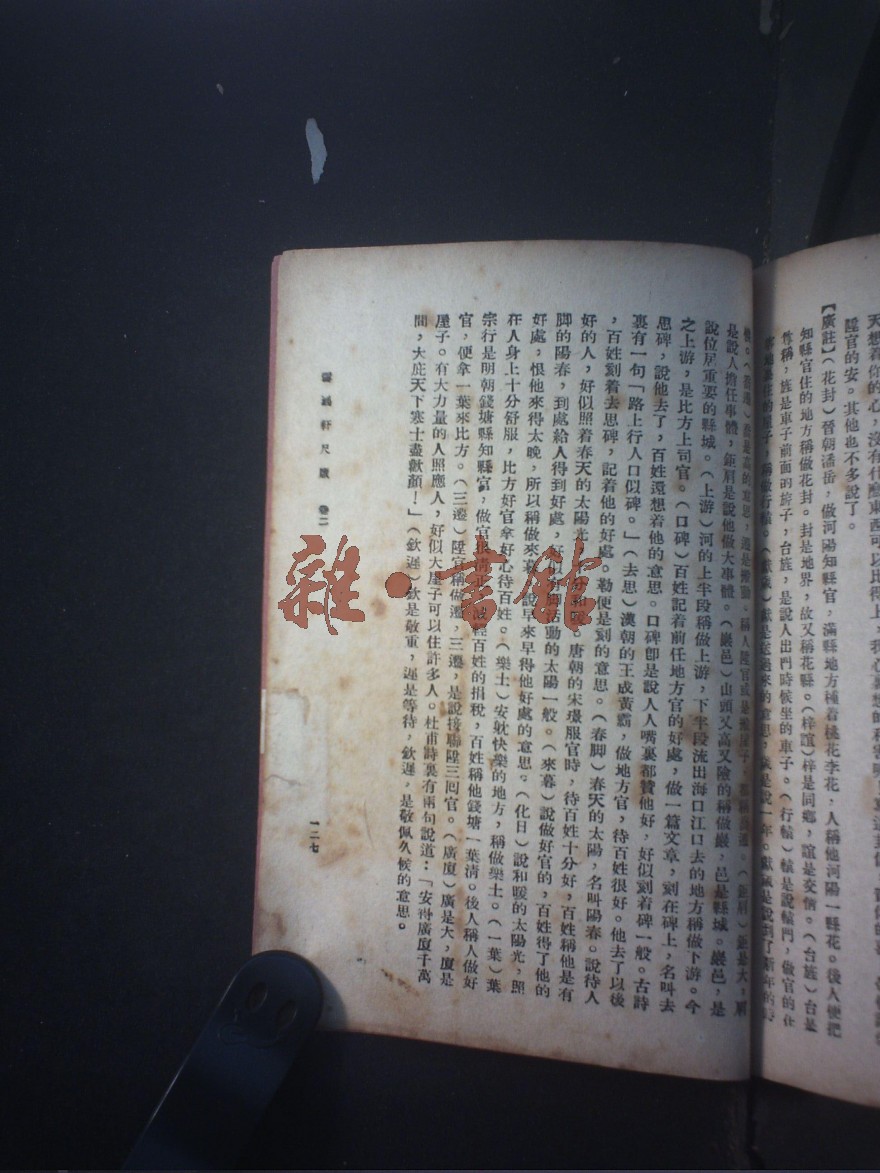 陞官的安。其他也不多說了。
【廣註】（花封）晉朝潘岳，做河陽知縣官，滿縣地方種着桃花李花，人稱他河陽一縣花。後人便把
知縣官住的地方稱做花封。封是地界，故又稱花縣。（梓誼）梓是同鄉，誼是交情。（台旌）台是
尊稱，旌是車子前面的旗子，台旌，是說人出門時候坐的車子。（行轅）轅是說轅門，做官的在
是說人擔任事體，鉅肩是說他做大事體。（巖邑）山頭又高又險的稱做巖，邑是縣城。巖邑，是
說位居重要的縣城。（上游）河的上半段稱做上游，下半段流出海口江口去的地方稱做下游。今
之上游，是比方上司官。（口碑）百姓記着前任地方官的好處，做一篇文章，刻在碑上，名叫去
思碑，說他去了，百姓還想着他的意思。口碑卽是說人人嘴裏都贊他好，好似刻着碑一般。古詩
裏有一句「路上行人口似碑。」（去思）漢朝的王成黃霸，做地方官，待百姓很好。他去了以後
，百姓刻着去思碑，記着他的好處。勒便是刻的意思。（春脚）春天的太陽，名叫陽春。說待人
好的人，好似照着春天的太陽光，十分和暖。唐朝的宋璟服官時，待百姓十分好，百姓稱他是有
脚的陽春，到處給人得到好處，好似有脚活動的太陽一般。（來暮）說做好官的，百姓得了他的
好處，恨他來得太晚，所以稱做來暮，說早來早得他好處的意思。（化日）說和暖的太陽光，照
在人身上十分舒服，比方好官拿好心待百姓。（樂土）安躭快樂的地方，稱做樂土。（一葉）葉
宗行是明朝錢塘縣知縣官，做官很清正，減輕百姓的捐稅，百姓稱他錢塘一葉清。後人稱人做好
官，便拿一葉來比方。（三遷）陞官稱做遷，三遷，是說接聯陞三囘官。（廣廈）廣是大，廈是
屋子。有大力量的人照應人，好似大屋子可以住許多人。杜甫詩裏有兩句說道：「安得廣廈千萬
間，大庇天下寒士盡歡顏！」（欽遲）欽是敬重，遲是等待，欽遲，是敬佩久候的意思。
軒尺牘 卷二
一二七
雜·書館